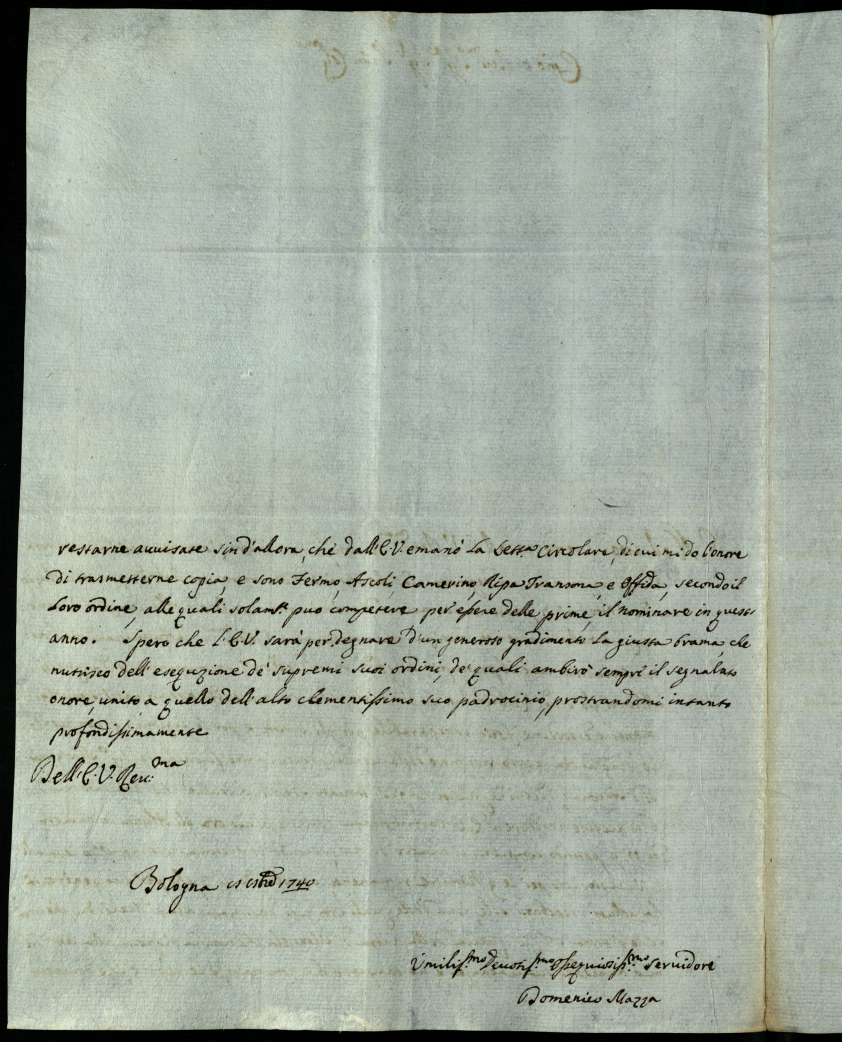 restarne avvisate sin d'allora, che dall'E.V. emanò la Lett.ra Circolare, di cui mi do l'onore
di trasmetterne copia, e sono Fermo, Ascoli, Camerino, Ripa Transona, e Offida, secondo il
Loro ordine, alle quali solam.te può competere per essere delle prime, il nominare in questo
anno. Spero che l'E.V. sarà per degnare d'un generoso gradimento la giusta brama, che
nutrisco dell'esequzione de' supremi suoi ordini, de' quali ambirò sempre il segnalato
onore, unito a quello dell'alto clementissimo suo padrocinio, prostrandomi intanto
profondissimamente
Dell'E.V. Rev.ma
Bologna 1740
Umiliss.mo Devotiss.mo Ossequiosiss.mo Servidore
Domenico Mazza